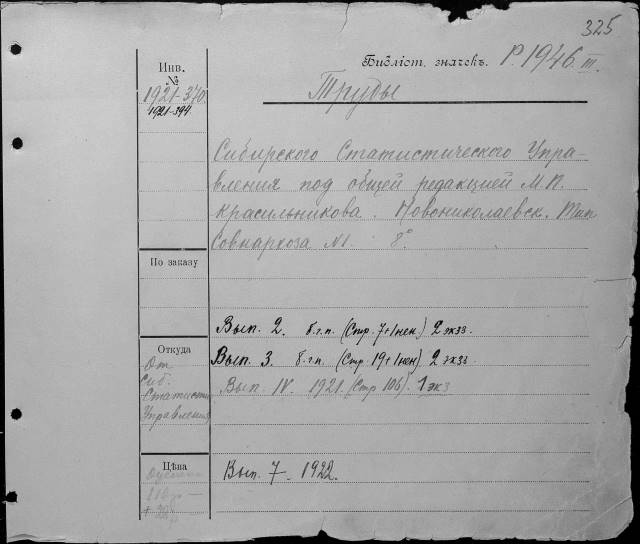 325
Инв.
№
1921-370.
1921-394.
Библіот. значекъ. P.1946.III.
Труды
Сибирского Статистического Упра-
вления под общей редакцией М.П.
Красильникова. Новониколаевск. Тип
Совнархоза №1. 8°
По заказу
Вып. 2. б.г.п. (Стр. 7+1нен.) 2 экз.
Откуда
От
Сиб.
Статистич
Управления
Вып. 3. б.г.п. (Стр. 19+1нен) 2 экз.
Вып. IV. 1921. (Стр 106). 1 экз
Цѣна
Вып. 7. 1922.